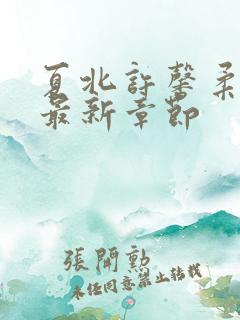 夏北許馨柔
最新章節
張開勳
未經同意禁止轉載